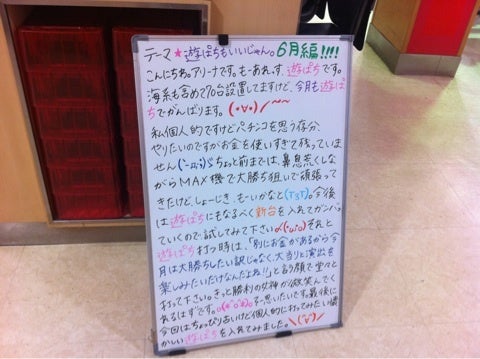 テーマ★遊ぱちもいいじゃん。6月編!!!!
こんにちわ。アリーナです。もーあれっす、遊ぱちです。
海系も含めて70台設置してますけど、今月も遊ぱ
ちでがんばります。(°∀°)ノ~~
私個人的ですけどパチンコを思う存分、
やりたいのですがお金を使いすぎて残っていま
せん(´-д-;)ちょっと前までは、鼻息荒くしな
がらMAX機で大勝ち狙いで頑張って
きたけど、しょーじき、もーいかなと(T3T)。今後
は遊ぱちにもなるべく新台を入れてガンバっ
ていくので試してみて下さいそれと
遊ぱち打つ時は、「別にお金があるから今
月は大勝ちしたい訳じゃなく、大当りと演出を
楽しみたいだけなんだよね!!」と言う顔で堂々と
打って下さい。きっと勝利の女神が微笑んでく
れるはずです。そっ思いたいです。最後に
今回はちょっぴり古いけど個人的に打ってみたい懐
かしい遊ぱちを入れてみました。＼(°∀°)／